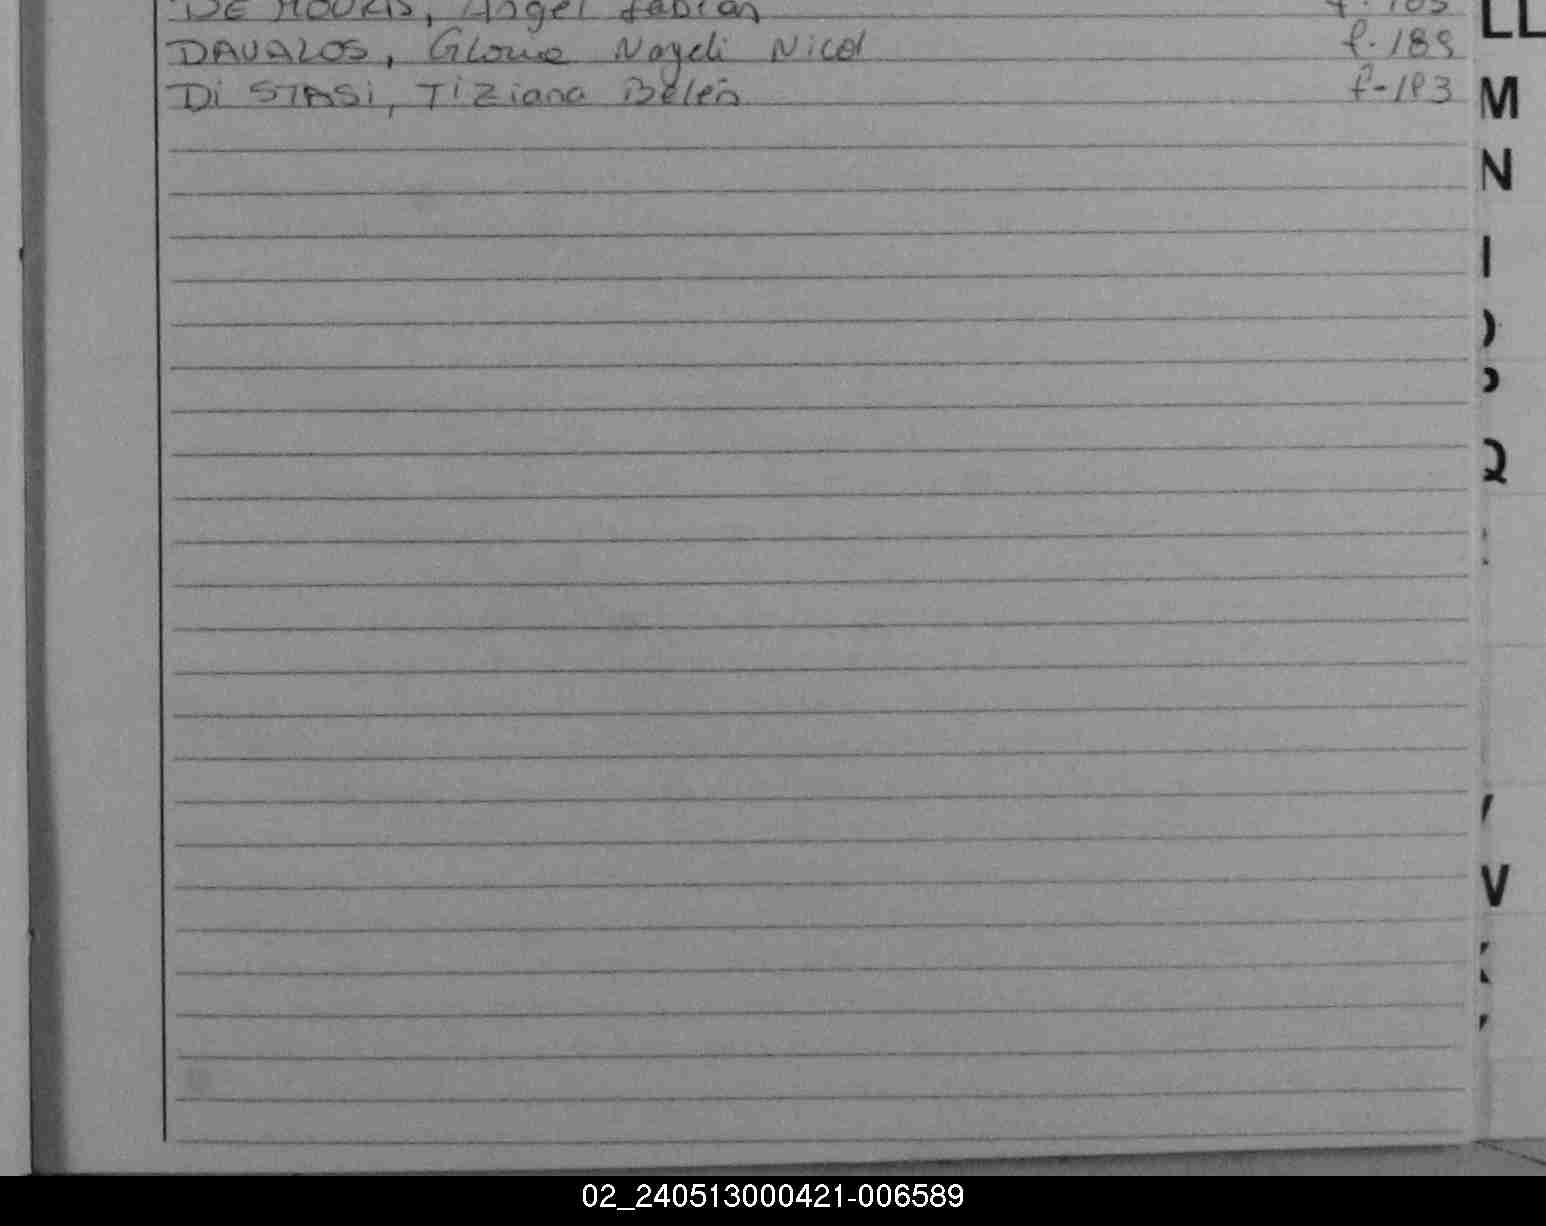 Angel fabian
DAVALOS, Gloria Nayeli Nicol f. 189
Di STASi, Tiziana Belén f-193
LL
M
N
Q
V
02_240513000421-006589